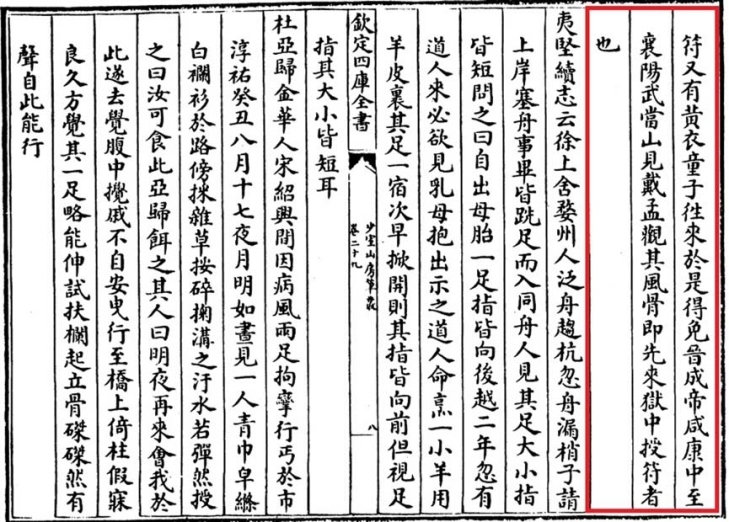 符又有黄衣童子徃來於是得免晉成帝咸康中至
襄陽武當山見戴孟觀其風骨即先來獄中授符者
也
夷堅續志云徐上舍婺州人泛舟趨杭忽舟漏梢子請
上岸塞舟事畢皆跣足而入同舟人見其足大小指
皆短問之曰自出母胎一足指皆向後越二年忽有
道人來必欲見乳母抱出示之道人命烹一小羊用
羊皮裹其足一宿次早掀開則其指皆向前但視足
欽定四庫全書
少室山房筆叢
卷二十九
八
指其大小皆短耳
杜亞歸金華人宋紹興間因病風兩足拘攣行丐於市
淳祐癸丑八月十七夜月明如晝見一人青巾皁絛
白襴衫於路傍採雜草挼碎掬溝之汙水若彈然授
之曰汝可食此亞歸餌之其人曰明夜再來會我於
此遂去覺腹中攪戚不自安曳行至橋上倚柱假寐
良久方覺其一足略能伸試扶欄起立骨磔磔然有
聲自此能行